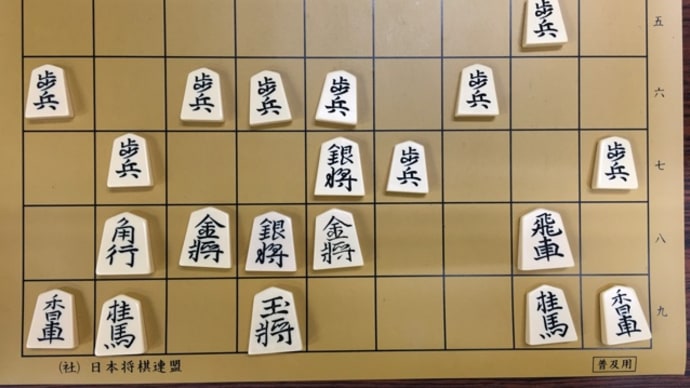 歩兵 五
歩兵 歩兵 歩兵 歩兵 歩兵 六
歩兵 銀将 歩兵 歩兵 七
角行 金将 銀将 金将 飛車 八
香車 桂馬 玉将 桂馬 香車 九
(社) 日本将棋連盟 普及用